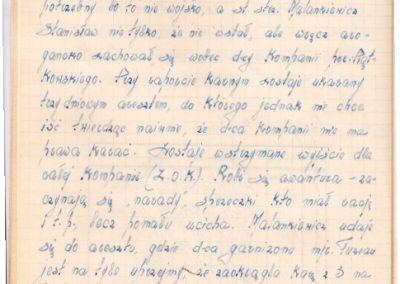 potrzebny do to nie wojsko, a st. strz. Matankiewicz
Stanisław nie tylko, że nie wstał, ale wręcz aro-
gancko zachował się wobec d-cy kompanii por. Piąt-
kowskiego. Przy raporcie karnym zostaje ukarany
trzydniowym aresztem, do którego jednak nie chce
iść twierdząc naiwnie, że d-ca kompanii nie ma
prawa karać. Zostaje wstrzymane wyjście dla
całej kompanii (Z.O.K.). Robi się awantura - za-
czynają się narady, sprzeczki kto miał rację
i t.p, lecz pomału ucicha. Matankiewicz udaje
się do aresztu, gdzie d-ca garnizonu mjr.
jest na tyle uprzejmy, że zaokrągla karę z 3 na